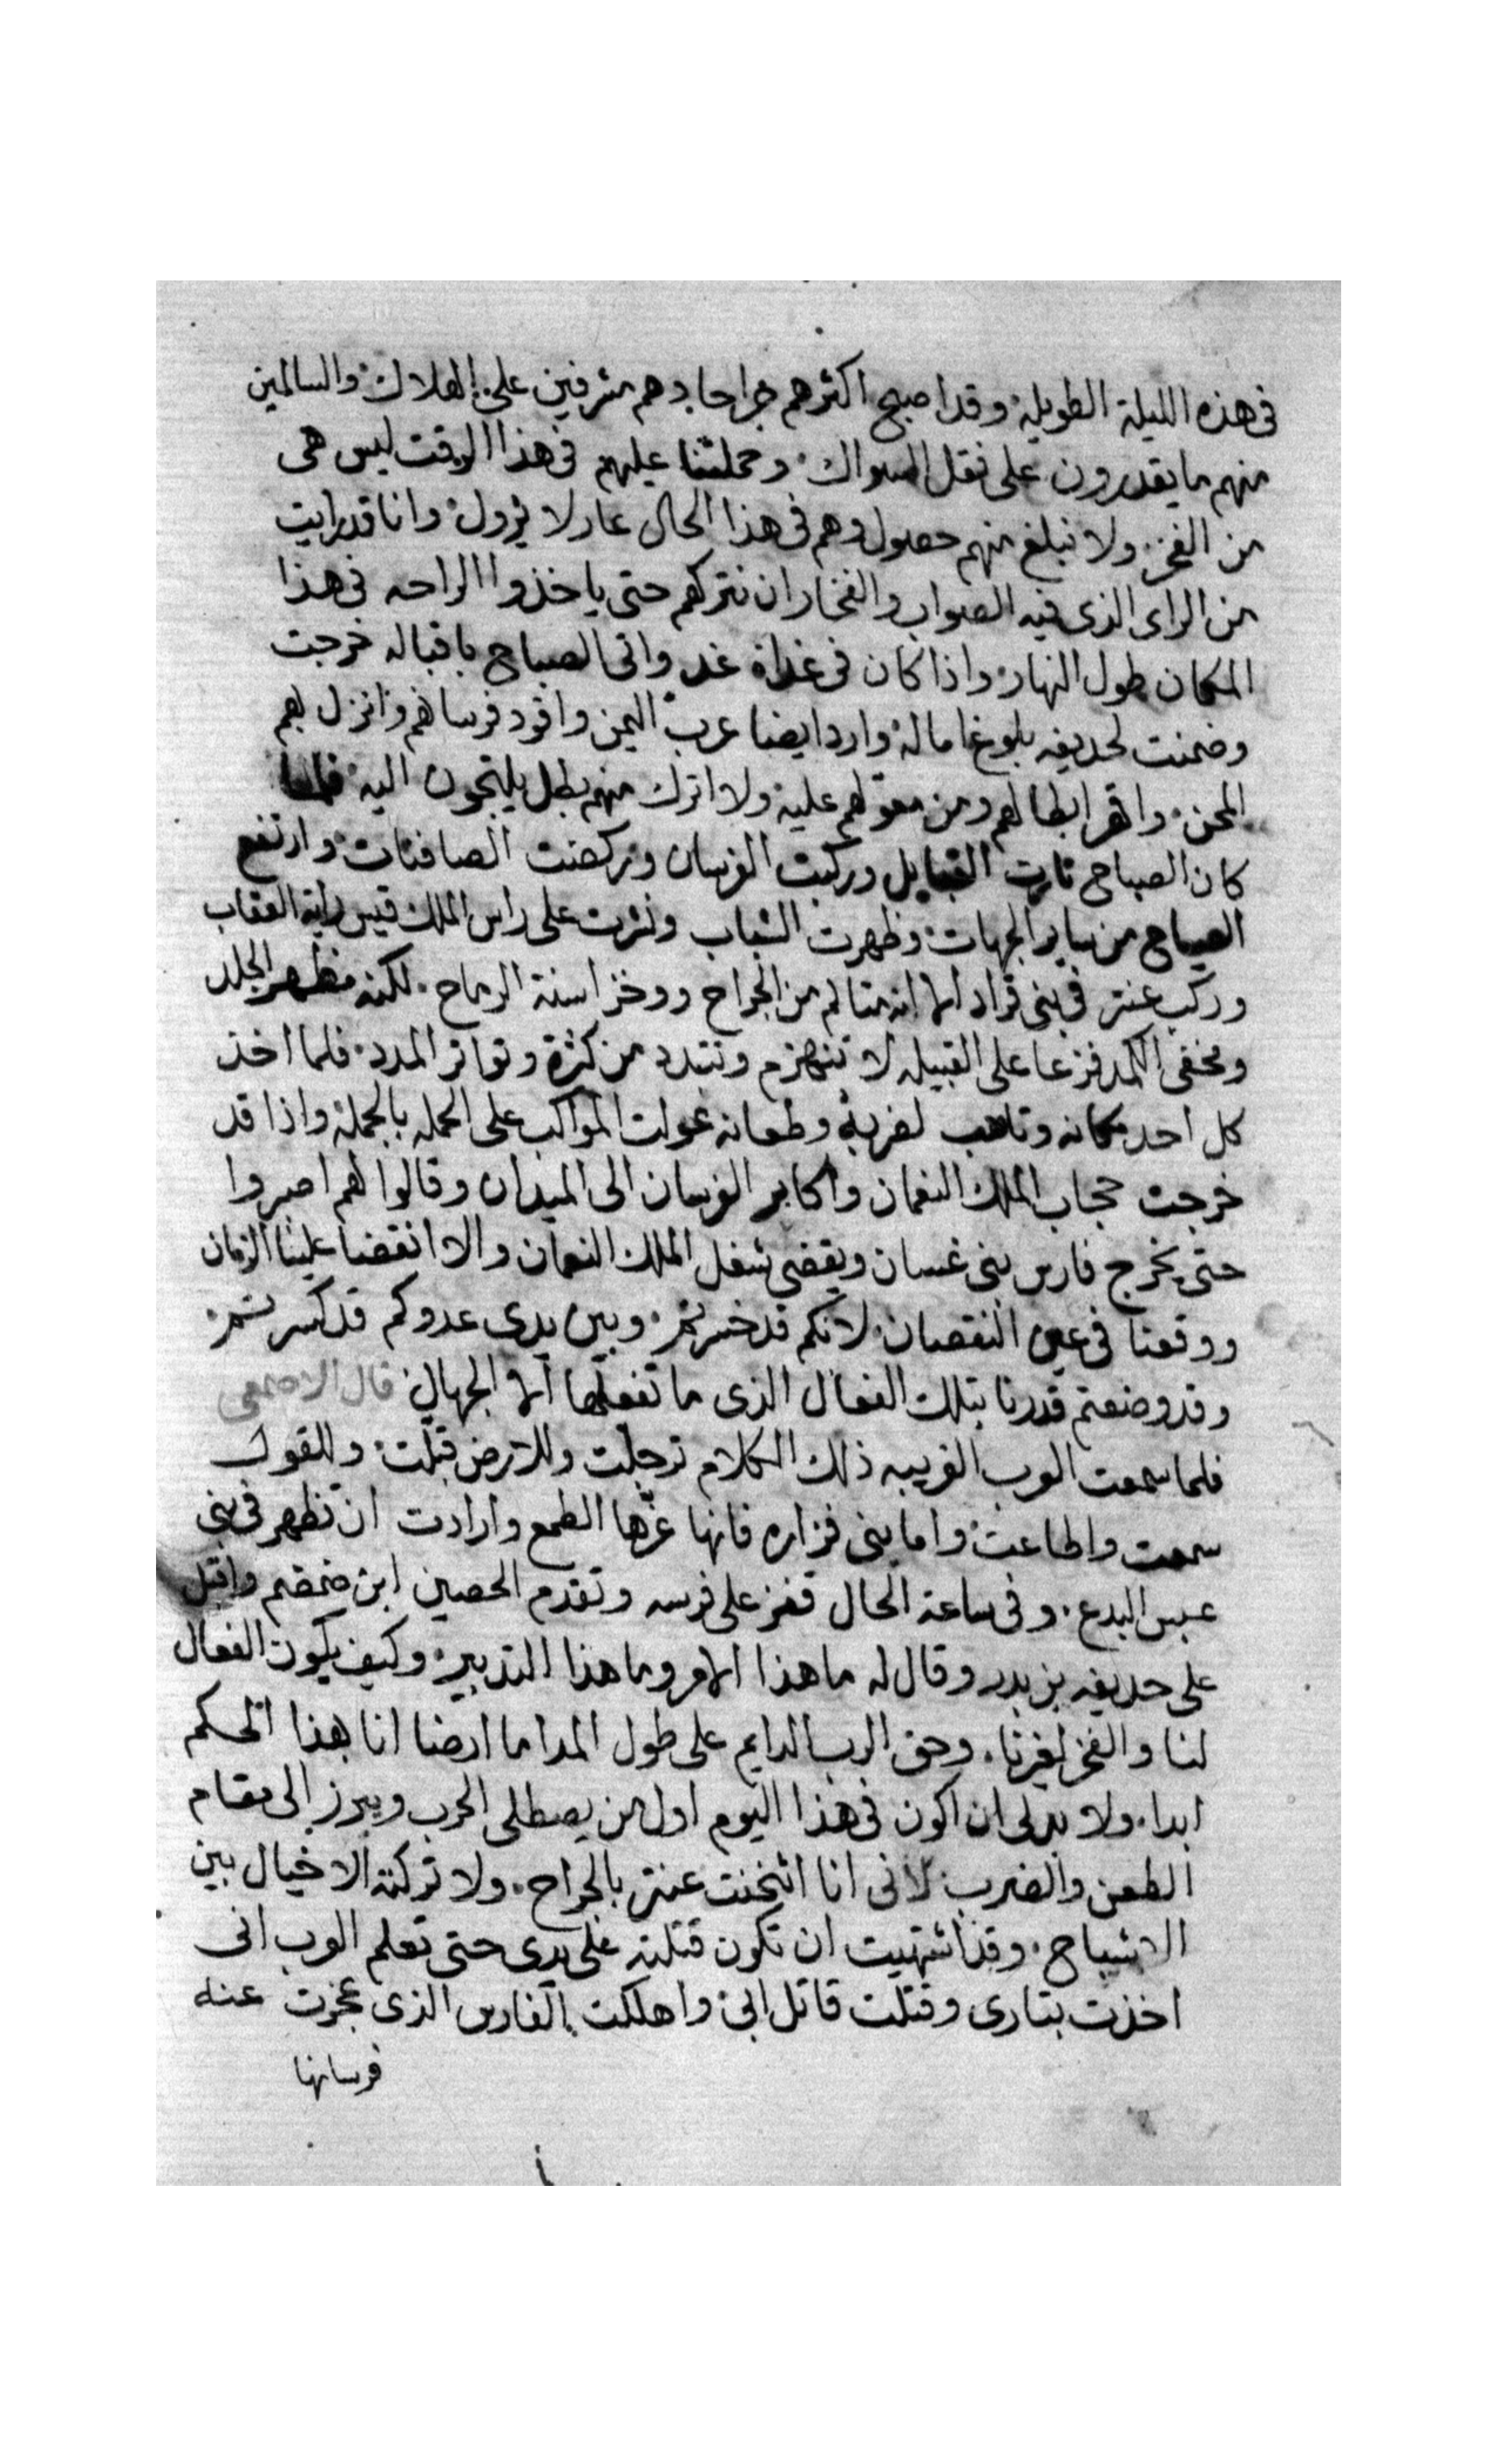 فى هذه الليلة الطويله وقد اصبح اكثرهم جراحا وهم مشرفين على الهلاك والسالمين
منهم ما يقدرون على نقل السواك وحملتنا عليهم فى هذا الوقت ليس هى
من الفخر ولا نبلغ منهم حصول وهم فى هذا الحال عار لا يزول وانا قد رايت
من الراى الذى فيه الصواب والفخار ان نتركهم حتى ياخذوا الراحه فى هذا
المكان طول النهار واذا كان فى غداة غد واتى الصباح باقباله خرجت
وضمنت لحديفه بلوغ اماله وارد ايضا عرب اليمن واقود فرسانهم وانزل بهم
المحن واقهر ابطالهم ومن معولهم عليه ولا اترك منهم بطل يلتجون اليه فلما
كان الصباح ثارت القبايل وركبت الفرسان وركضت الصافنات وارتفع
الصياح من ساير الجهات وظهرت الشباب ونشرت على راس الملك قيس راية العقاب
وركب عنتر فى بنى قراد الا انه متالم من الجراح ووخز اسنة الرماح لكنه مظهر الجلد
ومخفى الكمد فزعا على القبيله لا تنهزم وتتبدد من كثرة وتواتر المدد فلما اخذ
كل احد مكانه وتاهب لضربه وطعانه عولت المواكب على الحمله بالجملة واذا قد
خرجت حجاب الملك النعمان واكابر الفرسان الى الميدان وقالوا لهم اصبروا
حتى يخرج فارس بنى غسان ويقضى شغل الملك النعمان والا انقضا علينا الزمان
ووقعنا فى عين النقصان لانكم قد خسرتم وبين يدى عدوكم قد كسرتم
وقد وضعتم قدرنا بتلك الفعال الذى ما تفعلها الا الجهال قال الاصمعى
فلما سمعت العرب الغريبه ذلك الكلام ترجلت وللارض قبلت وللقول
سمعت واطاعت واما بنى فزاره فانها غرّها الطمع وارادت ان تظهر فى بنى
عبس البدع وفى ساعة الحال قفز على فرسه وتقدم الحصين ابن ضمضم واقبل
على حديفه بن بدر وقال له ما هذا الامر وما هذا التدبير وكيف يكون الفعال
لنا والفخر لغيرنا وحق الرب الدايم على طول المدا ما ارضا انا بهذا الحكم
ابدا ولا بد لى ان اكون فى هذا اليوم اول من يصطلى الحرب ويبرز الى مقام
الطعن والضرب لانى انا اثخنت عنتر بالجراح ولا تركته الا خيال بين
الاشباح وقد اشتهيت ان تكون قتلته على يدى حتى تعلم العرب انى
اخذت بتارى وقتلت قاتل ابى واهلكت الفارس الذى عجزت عنه
فرسانها